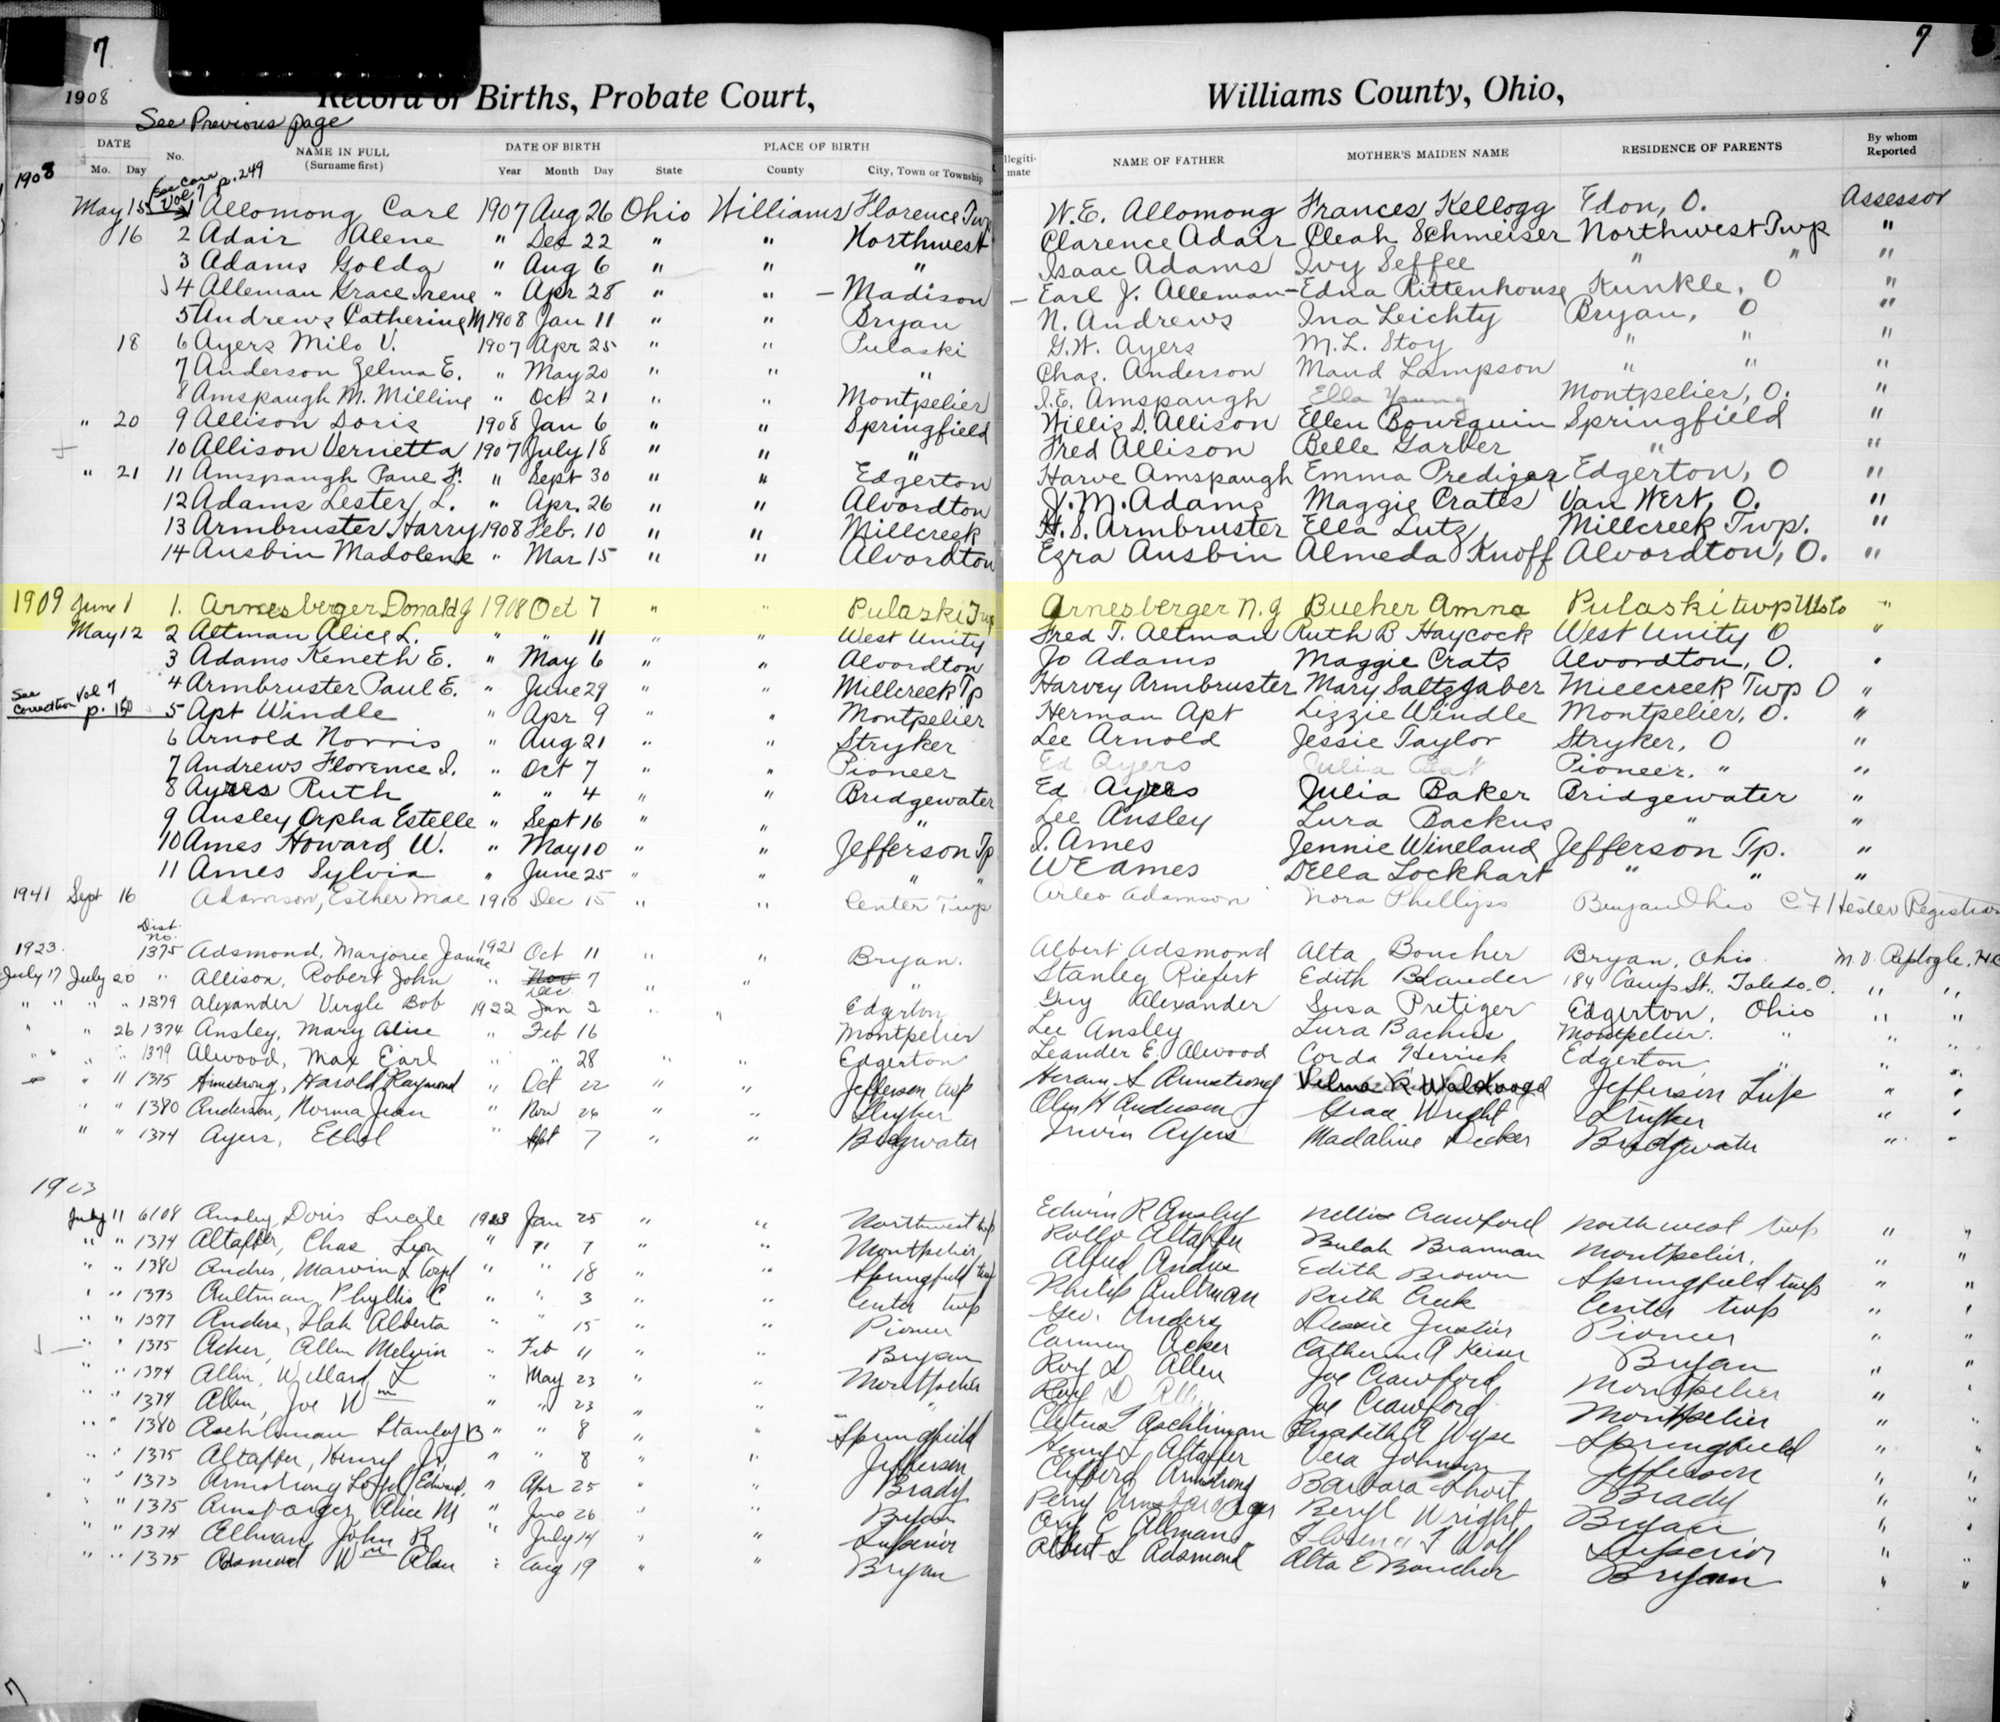 7 7
1908 Record of Births, Probate Court, Williams County, Ohio,
See Previous page
DATE No. NAME IN FULL DATE OF BIRTH PLACE OF BIRTH NAME OF FATHER MOTHER'S MAIDEN NAME RESIDENCE OF PARENTS By whom
Mo. Day (Surname first) Year Month Day State County City, Town or Township mate Reported
1908 See Corr Vol 7 p. 249
May 15 1 Allomong Carl 1907 Aug 26 Ohio Williams Florence Twp W.E. Allomong Frances Kellogg Edon, O. Assessor
16 2 Adair Alene " Dec 22 " " Northwest Clarence Adair Cleah Schmeiser Northwest Twp "
3 Adams Golda " Aug 6 " " " Isaac Adams Ivy Seffee " " "
4 Alleman Grace Irene " Apr 28 " " - Madison - Earl J. Alleman - Edna Rittenhouse Kunkle, O "
5 Andrews Catherine M 1908 Jan 11 " " Bryan N. Andrews Ina Leichty Bryan, O "
18 6 Ayers Milo V. 1907 Apr 25 " " Pulaski G.W. Ayers M.L. Stoy " " "
7 Anderson Zelma E. " May 20 " " " Chas. Anderson Maud Lampson " " "
8 Amspaugh M. Milling " Oct 21 " " Montpelier I.E. Amspaugh Ella Young Montpelier, O. "
" 20 9 Allison Doris 1908 Jan 6 " " Springfield Willis D. Allison Ellen Bourquin Springfield "
10 Allison Vernetta 1907 July 18 " " " Fred Allison Belle Garber " "
" 21 11 Amspaugh Paul F. " Sept 30 " " Edgerton Harve Amspaugh Emma Edgerton, O "
12 Adams Lester, L. " Apr. 26 " " Alvordton J.M. Adams Maggie Crates Van Wert, O. "
13 Armbruster Harry 1908 Feb. 10 " " Millcreek H.S. Armbruster Ella Lutz Millcreek Twp. "
14 Ausbin Madolene " Mar 15 " " Alvordton Ezra Ausbin Almeda Knoff Alvordton, O. "
1909 June 1 1. Arnesberger Donald J 1908 Oct 7 " " Pulaski Twp Arnesberger N. J Bucher Amna Pulaski twp "
May 12 2 Altman Alice L. " " 11 " " West Unity Fred T. Altman Ruth B Haycock West Unity O "
3 Adams Keneth E. " May 6 " " Alvordton Jo Adams Maggie Crats Alvordton, O. "
4 Armbruster Paul E. " June 29 " " Millcreek Tp Harvey Armbruster Mary Saltzgaber Millcreek Twp O "
See Correction Vol 7 p. 150 5 Apt Windle " Apr 9 " " Montpelier Herman Apt Lizzie Windle Montpelier, O. "
6 Arnold Norris " Aug 21 " " Stryker Lee Arnold Jessie Taylor Stryker, O "
7 Andrews Florence I. " Oct 7 " " Pioneer Ed Ayers Julia Pioneer. " "
8 Ayres Ruth " " 4 " " Bridgewater Ed Ayers Julia Baker Bridgewater "
9 Ansley Orpha Estelle " Sept 16 " " " Lee Ansley Lura Backus " "
10 Ames Howard W. " May 10 " " Jefferson Tp I. Ames Jennie Wineland Jefferson Tp. "
11 Ames Sylvia " June 25 " " " " W E Ames Della Lockhart " " "
1941 Sept 16 Adamson, Esther Mae 1910 Dec 15 " " Center Twp Arleo Adamson Nora Phillips Bryan Ohio C F Hester Registrar
Dist. No.
1923. 1375 Adsmond, Marjorie Jeanne 1921 Oct 11 " " Bryan. Albert Adsmond Alta Boucher Bryan, Ohio M. V. Replogle, H.C
July 17 July 20 " Allison, Robert John " Nov Dec 7 " " " Stanley Riefert Edith Blander 184 Camp St., Toledo, O. " "
" " " " 1379 Alexander Virgle Bob 1922 Jan 2 " " Edgerton Guy Alexander Susa Pretiger Edgerton, Ohio " "
" " 26 1374 Ansley, Mary Alice " Feb 16 Montpelier Lee Ansley Lura Bachus Montpelier. " " "
" " " " 1379 Alwood, Max Earl " " 28 " " Edgerton Leander E. Alwood Corda Herrick Edgerton " " "
" 11 1375 Armstrong, Harold Raymond " Oct 22 " " Jefferson twp Hiram S Armstrong Velma R Jefferson Twp " "
" " 1380 Anderson, Norma Jean " Nov 26 " " Stryker Olen H Anderson Grace Wright Stryker " "
" " 1374 Ayers, Ethel " Sept 7 " " Bridgwater Irwin Ayers Madaline Decker Bridgewater " "
1923
July 11 6108 Ansley, Doris Lucile 1923 Jan 25 " " Northwest twp Edwin R Ansley Nellie Crawford North west twp " "
" " 1374 Altaffer, Chas Leon " " 7 " " Montpelier Rollo Altaffer Bulah Brannan Montpelier. " "
" " 1380 Andres, Marvin L " " 18 " " Springfield twp Alfred Andres Edith Brown Springfield twp " "
" " 1373 Aultman Phyllis C " " 3 " " Center twp Philip Aultman Ruth Center twp " "
" " 1377 Anders, Ilah Alberta " " 15 " " Pioneer Geo. Anders Dessie Justice Pioneer " "
" " 1375 Acker, Allen Melvin " Feb 11 " " Bryan Carmen Acker Catherine A Keiser Bryan " "
" " 1374 Allen, Willard L " May 23 " " Montpelier Roy D Allen Joe Crawford Montpelier " "
" " 1374 Allen, Joe Wm " " 23 " " " Roy D Allen Joe Crawford Montpelier " "
" " 1380 Aschliman Stanley B " " 8 " " Springfield Cletus T Aschliman Elizabeth A Wyse Springfield " "
" " 1375 Altaffer, Henry Jr. " " 8 " " Jefferson Henry L Altaffer Vera Johnson Jefferson " "
" " 1373 Armstrong Loyd Edward. " Apr 25 " " Brady Clifford Armstrong Barbara Short Brady " "
" " 1375 Arnsbarger, Alice M " June 26 " " Bryan Perry Arnsbarger Beryl Wright Bryan " "
" " 1374 Allman, John R " July 14 " " Superior C Allman Florence T Wolf Superior " "
" " 1375 Adsmond Wm Alan " Aug 19 " " Bryan Albert L Adsmond Alta E Boucher Bryan " "
7